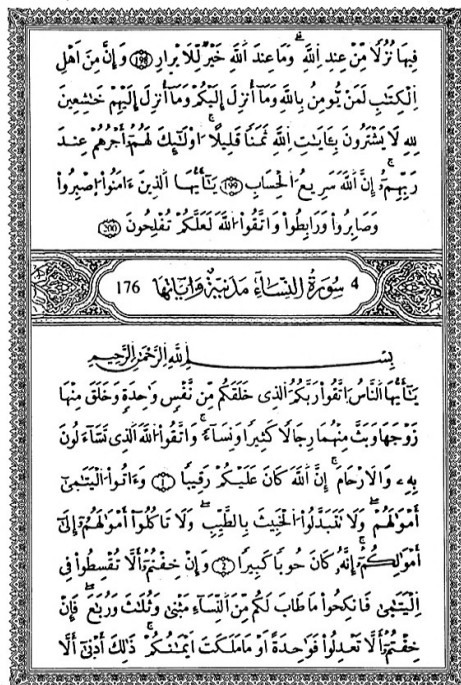 فِيهَا نُزُلًا مِّنْ عِندِ اِ۬للَّهِۖ وَمَا عِندَ اَ۬للَّهِ خَيْرٞ لِّلَابْرٖارِۖ 198 وَإِنَّ مِنَ اَهْلِ
اِ۬لْكِتَٰبِ لَمَنْ يُّومِنُ بِاللَّهِ وَمَآ أُنزِلَ إِلَيْكُمْ وَمَآ أُنزِلَ إِلَيْهِمْ خَٰشِعِينَ
لِلهِ لَا يَشْتَرُونَ بِـَٔايَٰتِ اِ۬للَّهِ ثَمَنًا قَلِيلًاۚ ا۟وْلَٰٓئِكَ لَهُمُۥٓ أَجْرُهُمْ عِندَ
رَبِّهِمُۥٓۚ إِنَّ اَ۬للَّهَ سَرِيعُ اُ۬لْحِسَابِۖ 199 يَٰٓأَيُّهَا اَ۬لذِينَ ءَامَنُواْ اُ۪صْبِرُواْ
وَصَابِرُواْ وَرَابِطُواْ وَاتَّقُواْ اُ۬للَّهَ لَعَلَّكُمْ تُفْلِحُونَۖ 200
4 سُورَةُ اُ۬لنِّسَآءِ مَدَنِيَّةٌ وَءَايَاتُهَا 176
بِسْمِ اِ۬للَّهِ اِ۬لرَّحْمَٰنِ اِ۬لرَّحِيمِ
يَٰٓأَيُّهَا اَ۬لنَّاسُ اُ۪تَّقُواْ رَبَّكُمُ اُ۬لذِي خَلَقَكُم مِّن نَّفْسٖ وَٰحِدَةٖ وَخَلَقَ مِنْهَا
زَوْجَهَا وَبَثَّ مِنْهُمَا رِجَالٗا كَثِيرٗا وَنِسَآءٗۚ وَاتَّقُواْ اُ۬للَّهَ اَ۬لذِي تَسَّآءَلُونَ
بِهِۦ وَالَارْحَامَۚ إِنَّ اَ۬للَّهَ كَانَ عَلَيْكُمْ رَقِيبٗاۖ 1 وَءَاتُواْ اُ۬لْيَتَٰمَىٰٓ
أَمْوَٰلَهُمْۖ وَلَا تَتَبَدَّلُواْ اُ۬لْخَبِيثَ بِالطَّيِّبِۖ وَلَا تَاكُلُوٓاْ أَمْوَٰلَهُمُۥٓ إِلَىٰٓ
أَمْوَٰلِكُمُۥٓۚ إِنَّهُۥ كَانَ حُوبٗا كَبِيرٗاۖ 2 وَإِنْ خِفْتُمُۥٓ أَلَّا تُقْسِطُواْ فِي
اِ۬لْيَتَٰمَىٰ فَانكِحُواْ مَا طَابَ لَكُم مِّنَ اَ۬لنِّسَآءِ مَثْنَىٰ وَثُلَٰثَ وَرُبَٰعَۖ فَإِنْ
خِفْتُمُۥٓ أَلَّا تَعْدِلُواْ فَوَٰحِدَةً اَوْ مَا مَلَكَتَ اَيْمَٰنُكُمْۚ ذَٰلِكَ أَدْنَىٰٓ أَلَّا